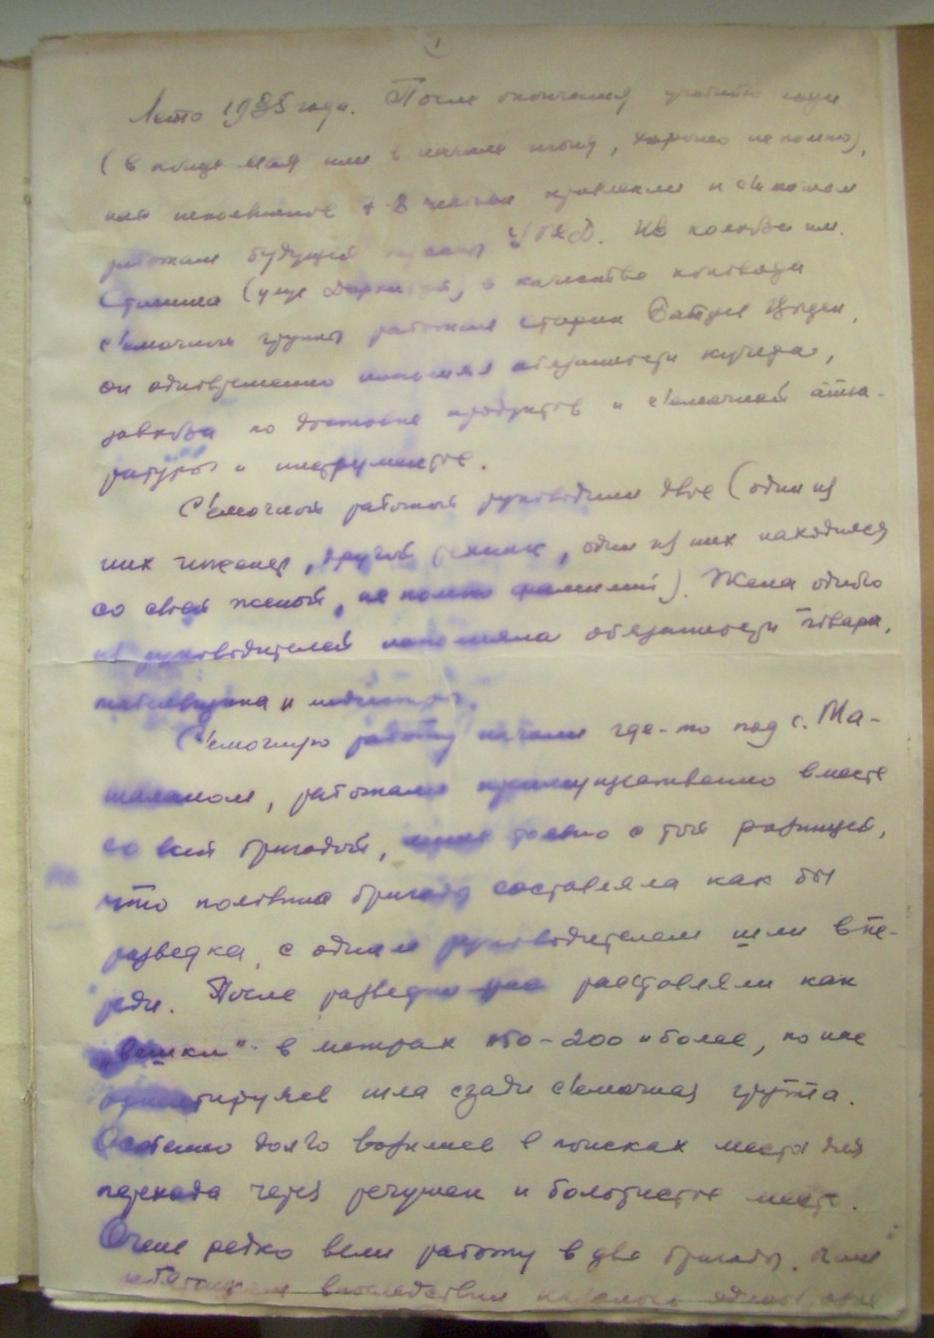 1
Лето 1935 года. После окончания учебного года
(в конце мая или в начале июня, хорошо не помню),
нас человек 8 к съемочным
работам будущей трассы УБЖД. Из колхоза им.
Сталина (улус ), в качестве коновода
съемочной группы работал старик Цыден,
он одновременно исполнял обязанности кучера,
завхоза по доставке продуктов и съемочной аппа-
ратуры и инструментов.
Съемочной работой руководили двое (один из
них инженер, другой техник, один из них находился
со своей женой, не помню фамилий). Жена одного
из руководителей исполняла обязанности повара,
и
Съемочную работу начали где-то под с. Ма-
, работали преимущественно вместе
со всей бригадой, только с той разницей,
что половина бригады составляла как бы
разведка, с одним руководителем шли впе-
реди. После разведки расставляли как
„вешки" в метрах 150-200 и более, по ним
ориентируясь шла сзади съемочная группа.
Особенно долго возились в поисках места для
перехода через речушки и болотистое место.
Очень редко вели работу в две бригады.
впоследствии